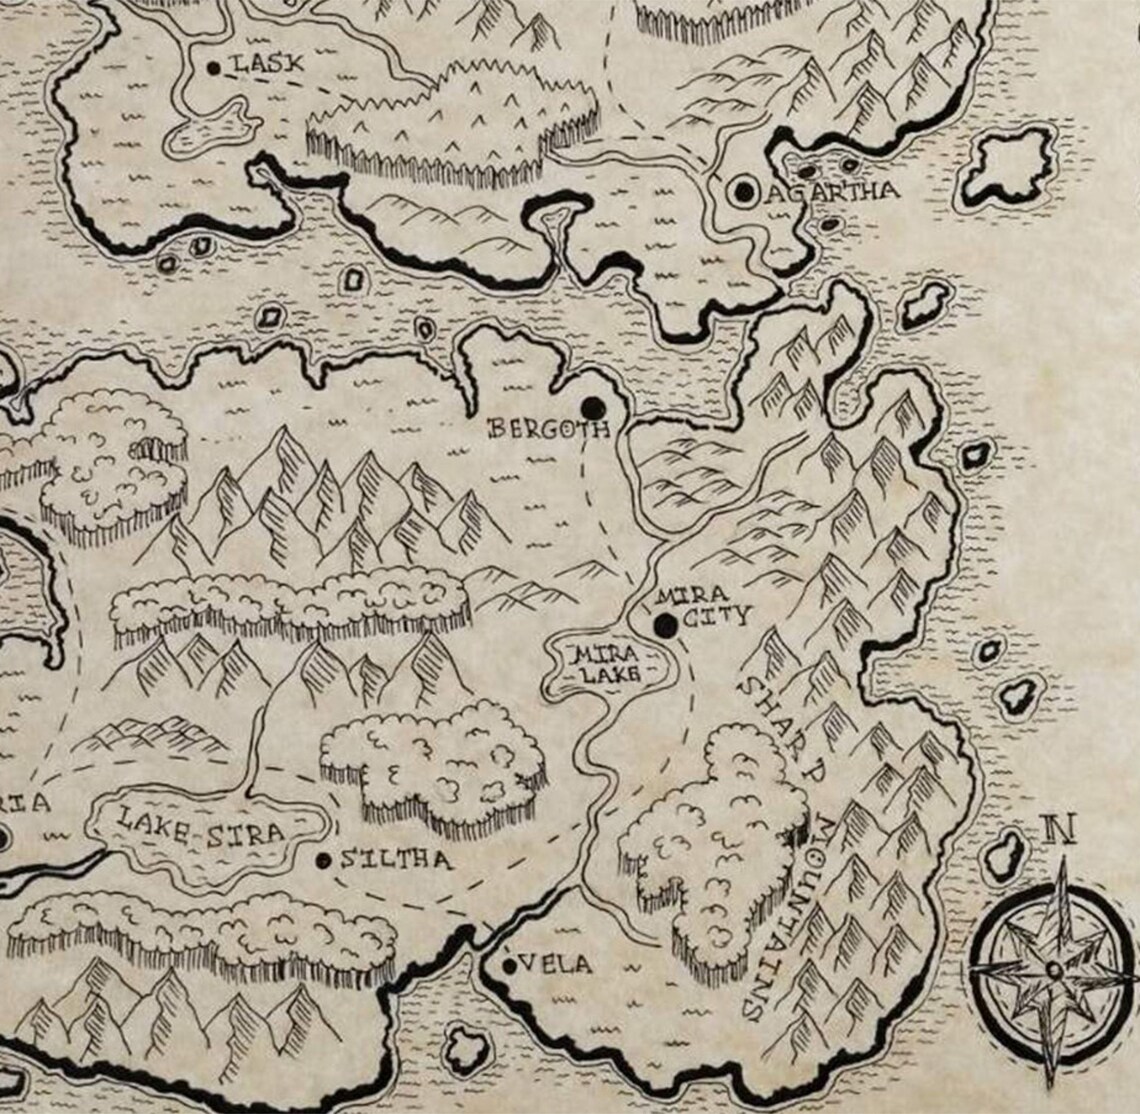 LASK
AGARTHA
BERGOTH
MIRA
CITY
MIRA
LAKE
SHARP
MOUNTAINS
RIA
LAKE SIRA
SILTHA
N
VELA